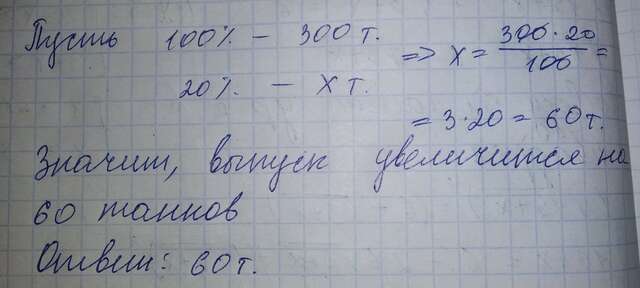 Пусть 100% – 300 т.
20% – X т.
=> X = 300·20/100 =
= 3·20 = 60 т.
Значит, выпуск увеличится на
60 танков
Ответ: 60 т.